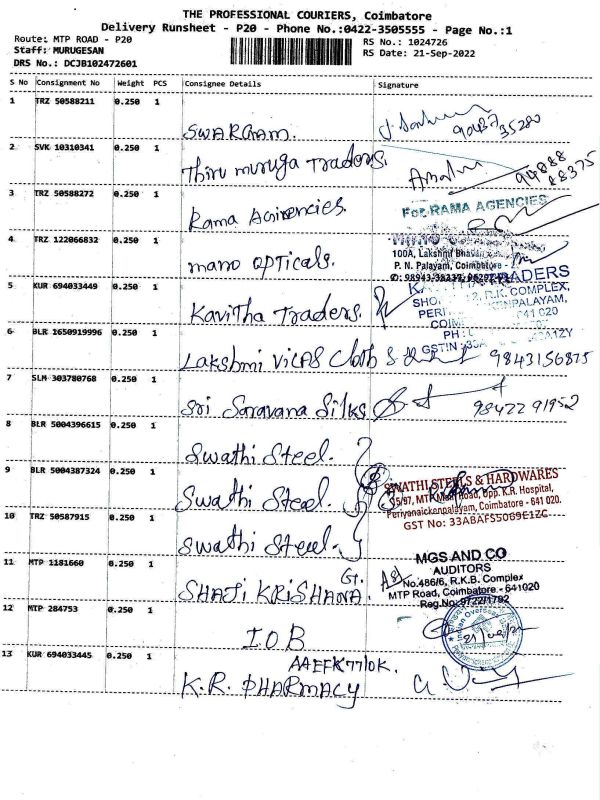 THE PROFESSIONAL COURIERS, Coimbatore
Delivery Runsheet - P20 - Phone No.:0422-3505555 - Page No.:1
Route: MTP ROAD - P20
RS No.: 1024726
Staff: MURUGESAN
RS Date: 21-Sep-2022
DRS No.: DCJB102472601
S No Consignment No Weight PCS Consignee Details Signature
1 TRZ 50588211 0.250 1
SWARGAM.
90487 35280
2 SVK 10310341 0.250 1
Thiru muruga Traders.
94888 88375
3 TRZ 50588272 0.250 1
Rama Agirencies.
For RAMA AGENCIES
4 TRZ 122066832 0.250 1
mano opticals.
100A, Lakshmi Bhavan
P. N. Palayam, Coimbatore -
5 KUR 694033449 0.250 1
Kavitha Traders.
TRADERS
R.K. COMPLEX,
641 020
6 BLR 1650919996 0.250 1
Lakshmi Vilas Cloth S
9843156875
7 SLM 303780768 0.250 1
Sri Saravana Silks
98422 91952
8 BLR 5004396615 0.250 1
Swathi Steel.
9 BLR 5004387324 0.250 1
Swathi Steel.
SWATHI STEELS & HARDWARES
5/97, MTP Main Road, Opp. K.R. Hospital,
Periyanaickenpalayam, Coimbatore - 641 020.
GST No: 33ABAFS5069E1ZC
10 TRZ 50587915 0.250 1
Swathi Steel.
11 MTP 1181660 0.250 1
SHAJI KRISHANA. G.
MGS AND CO
AUDITORS
No.486/6, R.K.B. Complex
MTP Road, Coimbatore - 641020
12 MTP 284753 0.250 1
I.O.B
13 KUR 694033445 0.250 1
AAEFK7710K.
K.R. PHARMACY